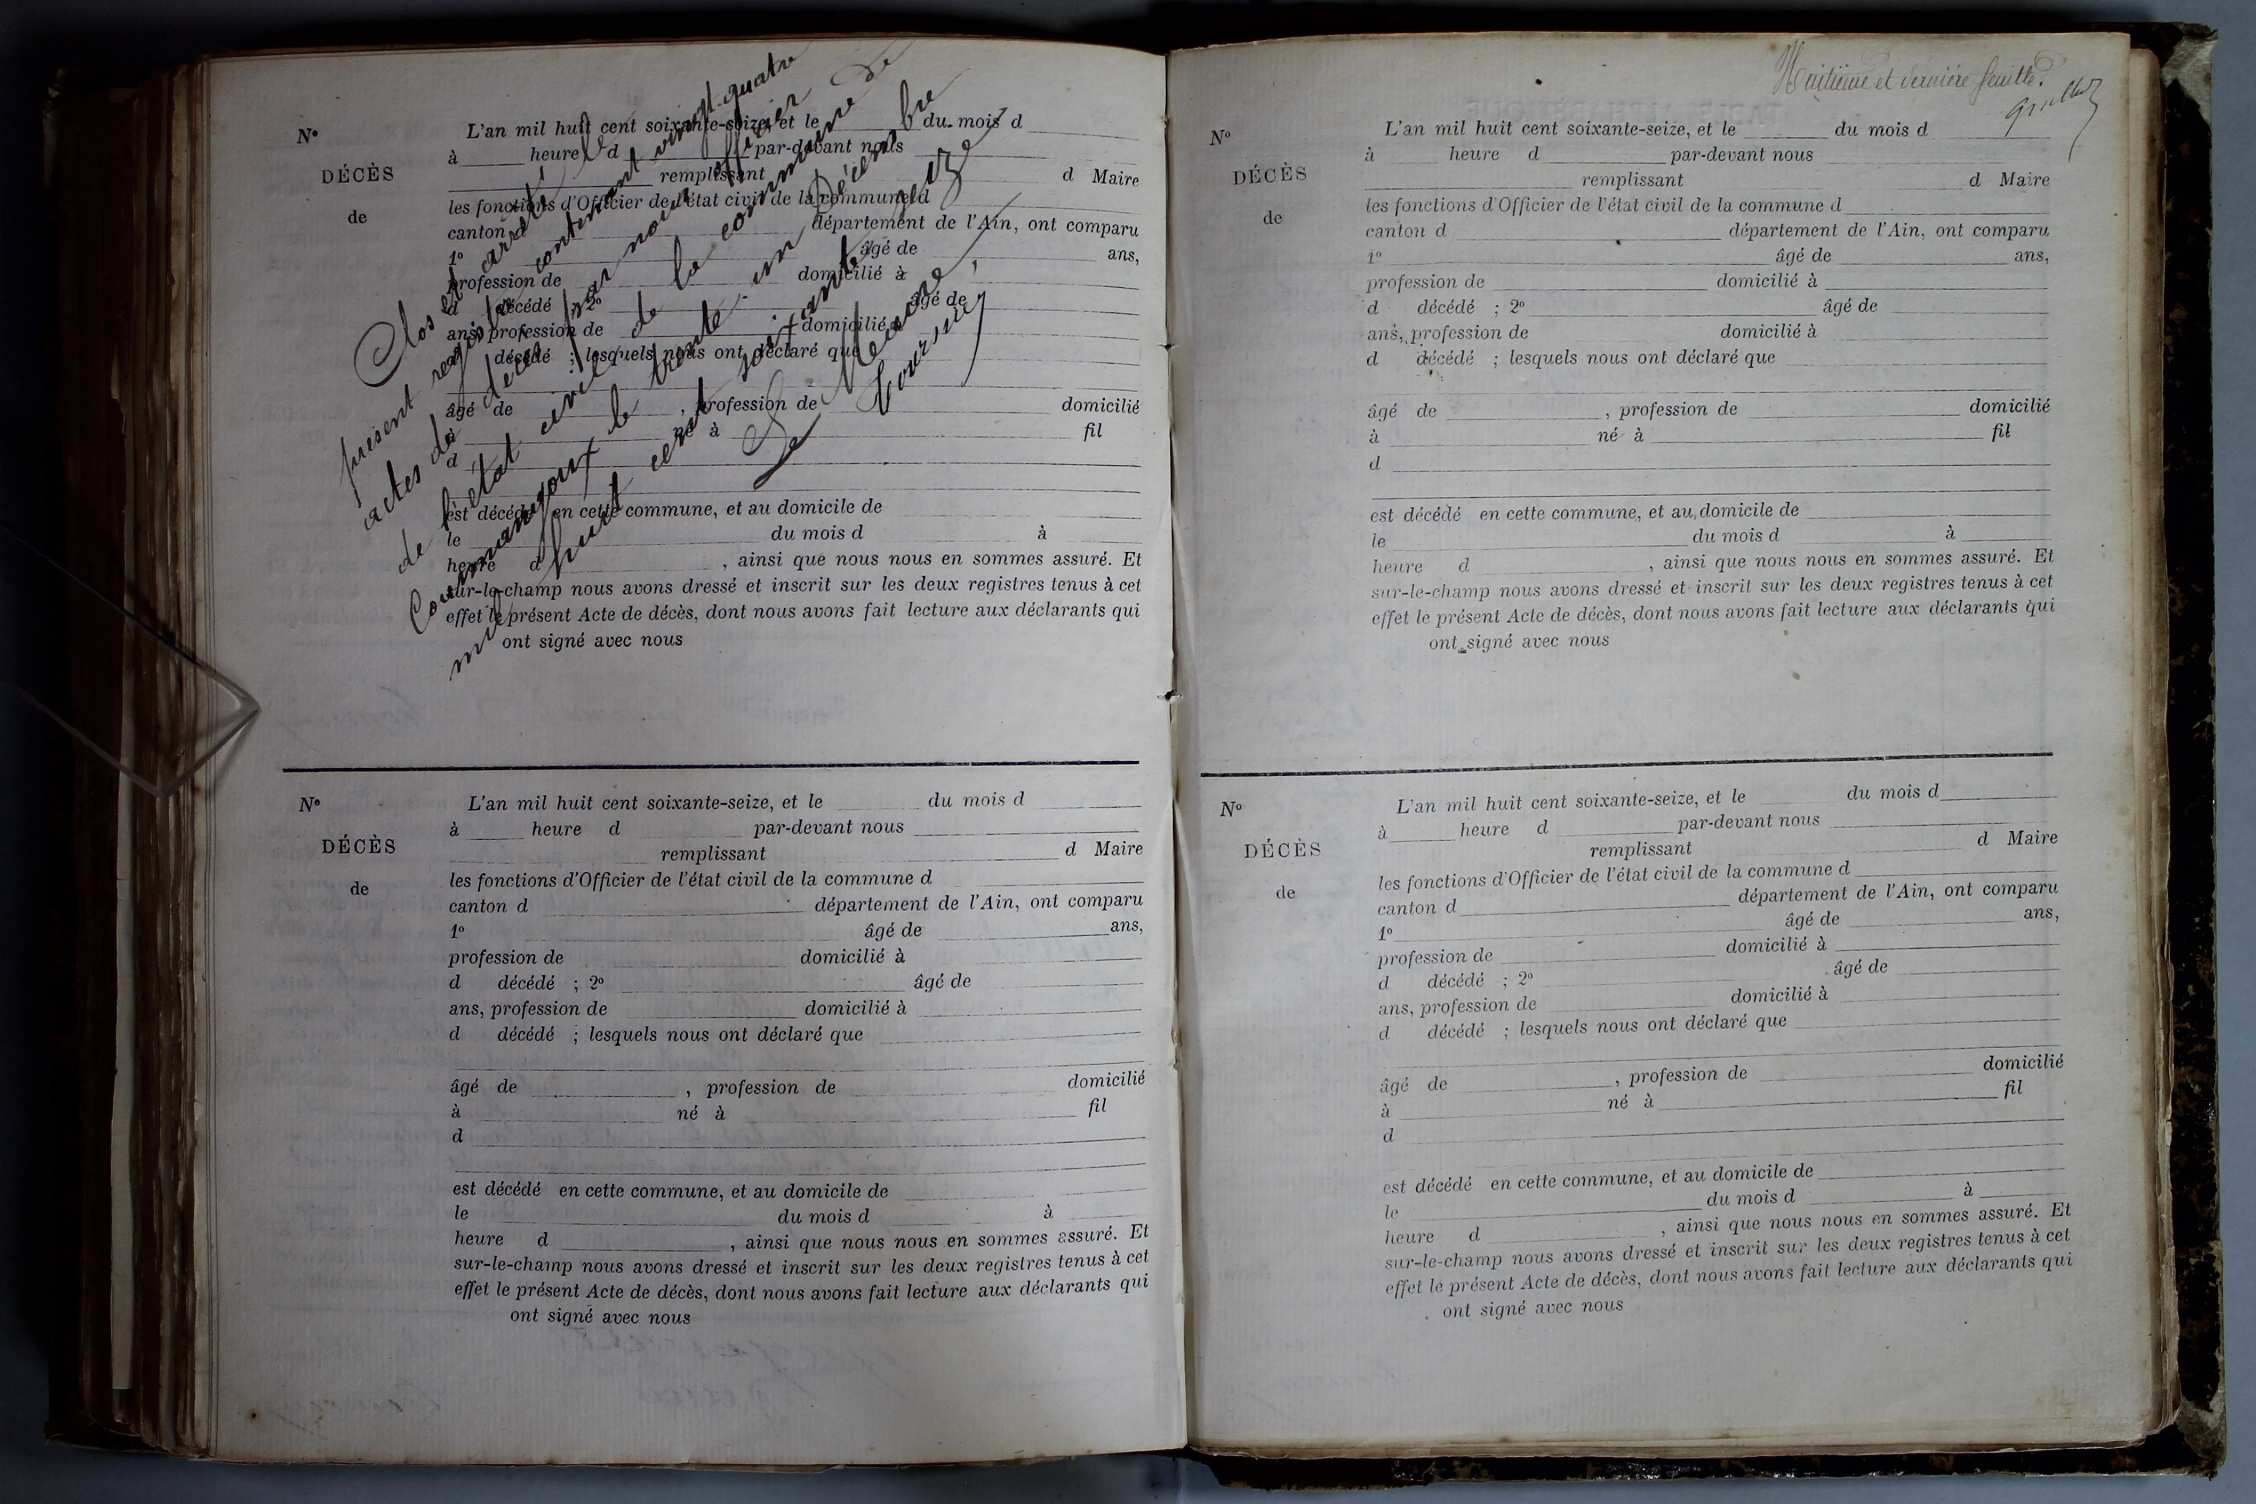 Clos et arrêté le
présent registre contenant vingt-quatre
actes de décès par nous officier
de l'état civil de la commune de
Courmangoux le trente un Décembre
mil huit cent soixante seize
Le Maire
N°
DÉCÈS
de
L'an mil huit cent soixante-seize, et le du mois d
à heure d par-devant nous
remplissant d Maire
les fonctions d'Officier de l'état civil de la commune d
canton d département de l'Ain, ont comparu
1° âgé de ans,
profession de domicilié à
d décédé ; 2° âgé de
ans, profession de domicilié à
d décédé ; lesquels nous ont déclaré que
âgé de , profession de domicilié
à né à fil
d
est décédé en cette commune, et au domicile de
le du mois d à
heure d , ainsi que nous nous en sommes assuré. Et
sur-le-champ nous avons dressé et inscrit sur les deux registres tenus à cet
effet le présent Acte de décès, dont nous avons fait lecture aux déclarants qui
ont signé avec nous
N°
DÉCÈS
de
L'an mil huit cent soixante-seize, et le du mois d
à heure d par-devant nous
remplissant d Maire
les fonctions d'Officier de l'état civil de la commune d
canton d département de l'Ain, ont comparu
1° âgé de ans,
profession de domicilié à
d décédé ; 2° âgé de
ans, profession de domicilié à
d décédé ; lesquels nous ont déclaré que
âgé de , profession de domicilié
à né à fil
d
est décédé en cette commune, et au domicile de
le du mois d à
heure d , ainsi que nous nous en sommes assuré. Et
sur-le-champ nous avons dressé et inscrit sur les deux registres tenus à cet
effet le présent Acte de décès, dont nous avons fait lecture aux déclarants qui
ont signé avec nous
Huitième et dernière feuille.
N°
DÉCÈS
de
L'an mil huit cent soixante-seize, et le du mois d
à heure d par-devant nous
remplissant d Maire
les fonctions d'Officier de l'état civil de la commune d
canton d département de l'Ain, ont comparu
1° âgé de ans,
profession de domicilié à
d décédé ; 2° âgé de
ans, profession de domicilié à
d décédé ; lesquels nous ont déclaré que
âgé de , profession de domicilié
à né à fil
d
est décédé en cette commune, et au domicile de
le du mois d à
heure d , ainsi que nous nous en sommes assuré. Et
sur-le-champ nous avons dressé et inscrit sur les deux registres tenus à cet
effet le présent Acte de décès, dont nous avons fait lecture aux déclarants qui
ont signé avec nous
N°
DÉCÈS
de
L'an mil huit cent soixante-seize, et le du mois d
à heure d par-devant nous
remplissant d Maire
les fonctions d'Officier de l'état civil de la commune d
canton d département de l'Ain, ont comparu
1° âgé de ans,
profession de domicilié à
d décédé ; 2° âgé de
ans, profession de domicilié à
d décédé ; lesquels nous ont déclaré que
âgé de , profession de domicilié
à né à fil
d
est décédé en cette commune, et au domicile de
le du mois d à
heure d , ainsi que nous nous en sommes assuré. Et
sur-le-champ nous avons dressé et inscrit sur les deux registres tenus à cet
effet le présent Acte de décès, dont nous avons fait lecture aux déclarants qui
ont signé avec nous